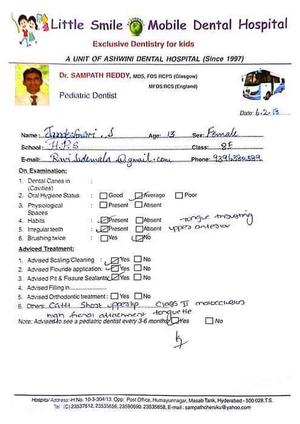 Little Smile Mobile Dental Hospital
Exclusive Dentistry for kids
A UNIT OF ASHWINI DENTAL HOSPITAL (Since 1997)
Dr. SAMPATH REDDY, MDS, FDS RCPS (Glasgow)
MFDS RCS (England)
Pediatric Dentist
Date: 6.2.13
Name: S Age: 13 Sex: Female
School: H.P.S Class: 8E
E-mail: @gmail.com Phone:
On Examination:
1. Dental Caries in :
(Cavities)
2. Oral Hygiene Status : Good Average Poor
3. Physiological : Present Absent
Spaces
4. Habits : Present Absent tongue thrusting
5. Irregular teeth : Present Absent upper anterior
6. Brushing twice : Yes No
Adviced Treatment:
1. Advised Scaling/Cleaning : Yes No
2. Advised Flouride application : Yes No
3. Advised Pit & Fissure Sealants : Yes No
4. Advised Filling in
5. Advised Orthodontic treatment : Yes No
6. Others: Short upperlip Class II
high frenal attachment
Note: Advised to see a pediatric dentist every 3-6 months Yes No
Hospital Address: H No. 10-3-304/13, Opp: Post Office, Humayunnagar, Masab Tank, Hyderabad - 500 028.
Tel: (C) 23537612, 23535658, 23590690, 23535658, E-mail: sampathchersku@yahoo.com